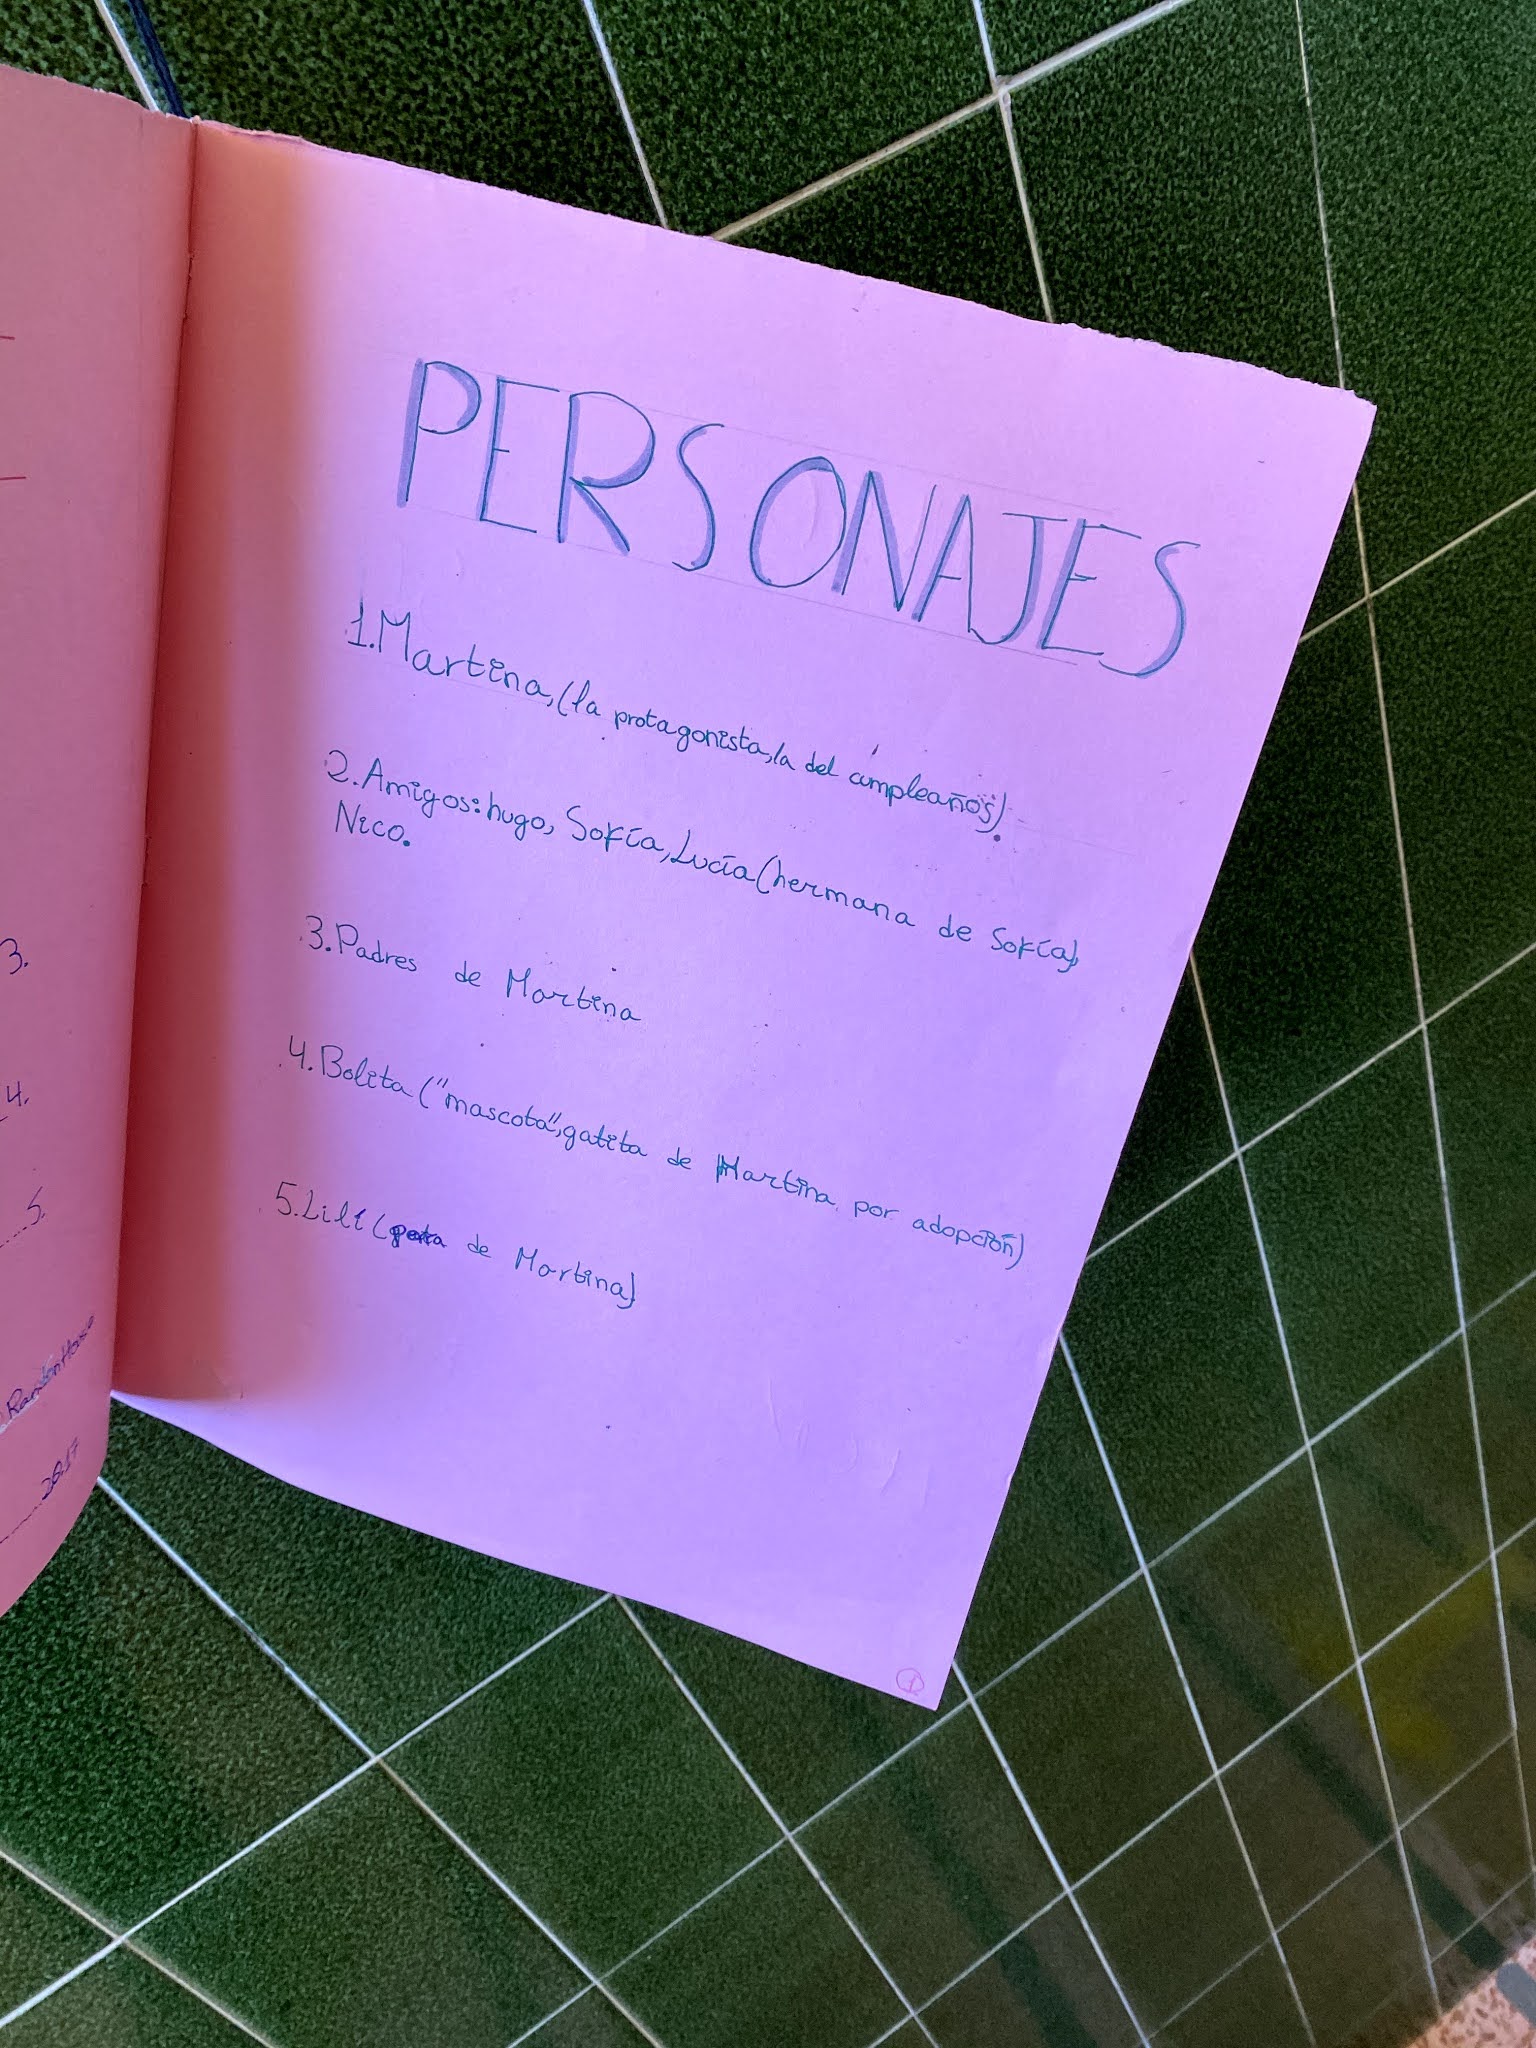 3.
4.
5.
Random House
2017
PERSONAJES
1.Martina,(la protagonista,la del cumpleaños).
2.Amigos:hugo, Sofía,Lucía(hermana de Sofía),
Nico.
3.Padres de Martina
4.Bolita("mascota",gatita de Martina por adopción)
5.Lili( de Martina)
1